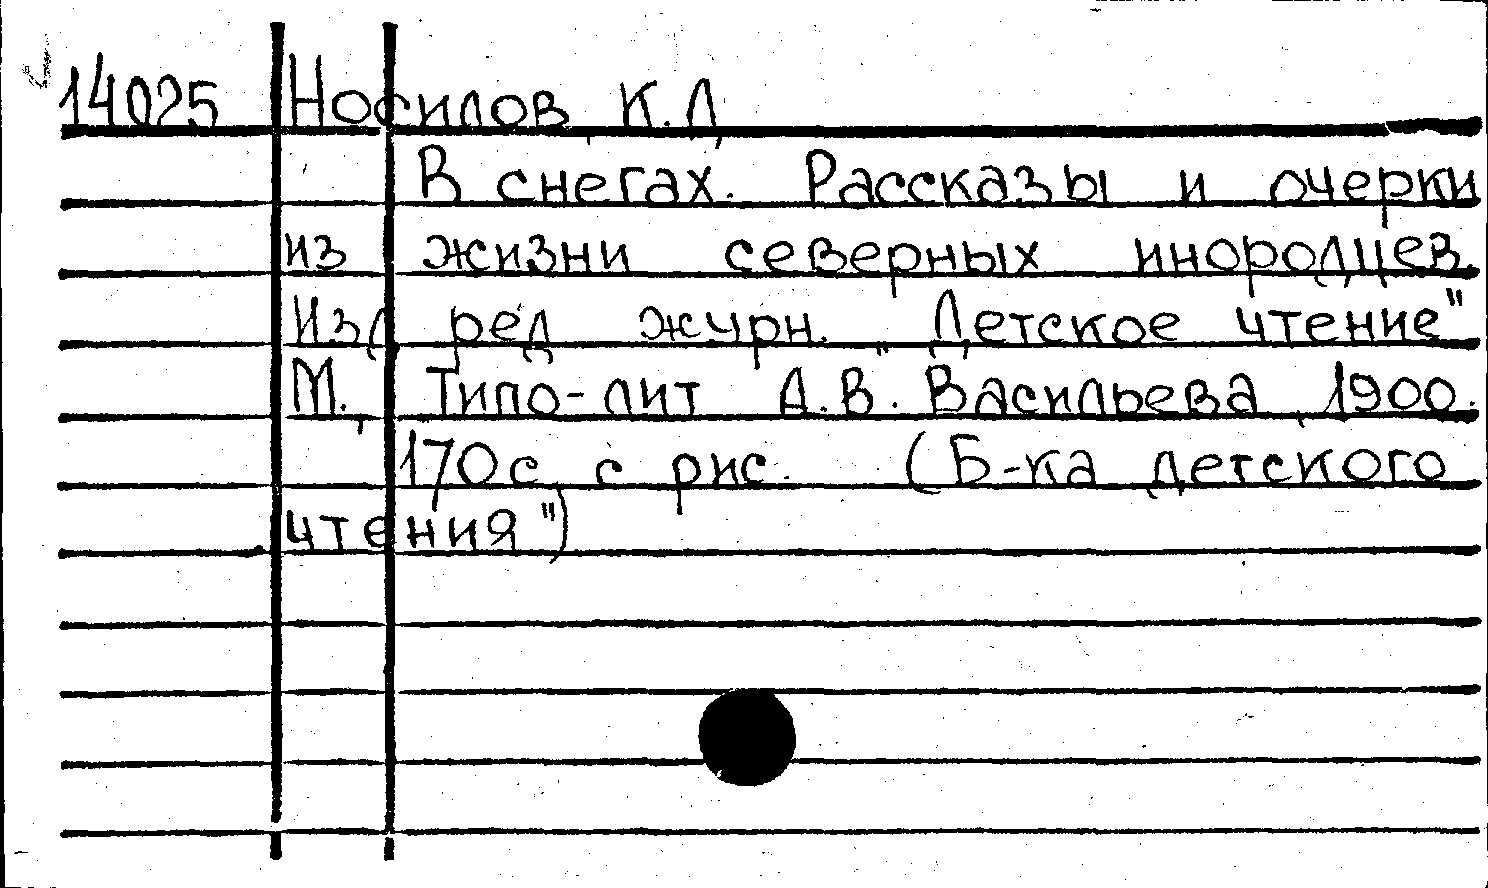 14025 Носилов, К.Д.
В снегах. Рассказы и очерки
из жизни северных инородцев.
Изд. ред. журн. „Детское чтение"
М., Типо-лит А.В. Васильева, 1900.
170с. с рис. (Б-ка детского
чтения")